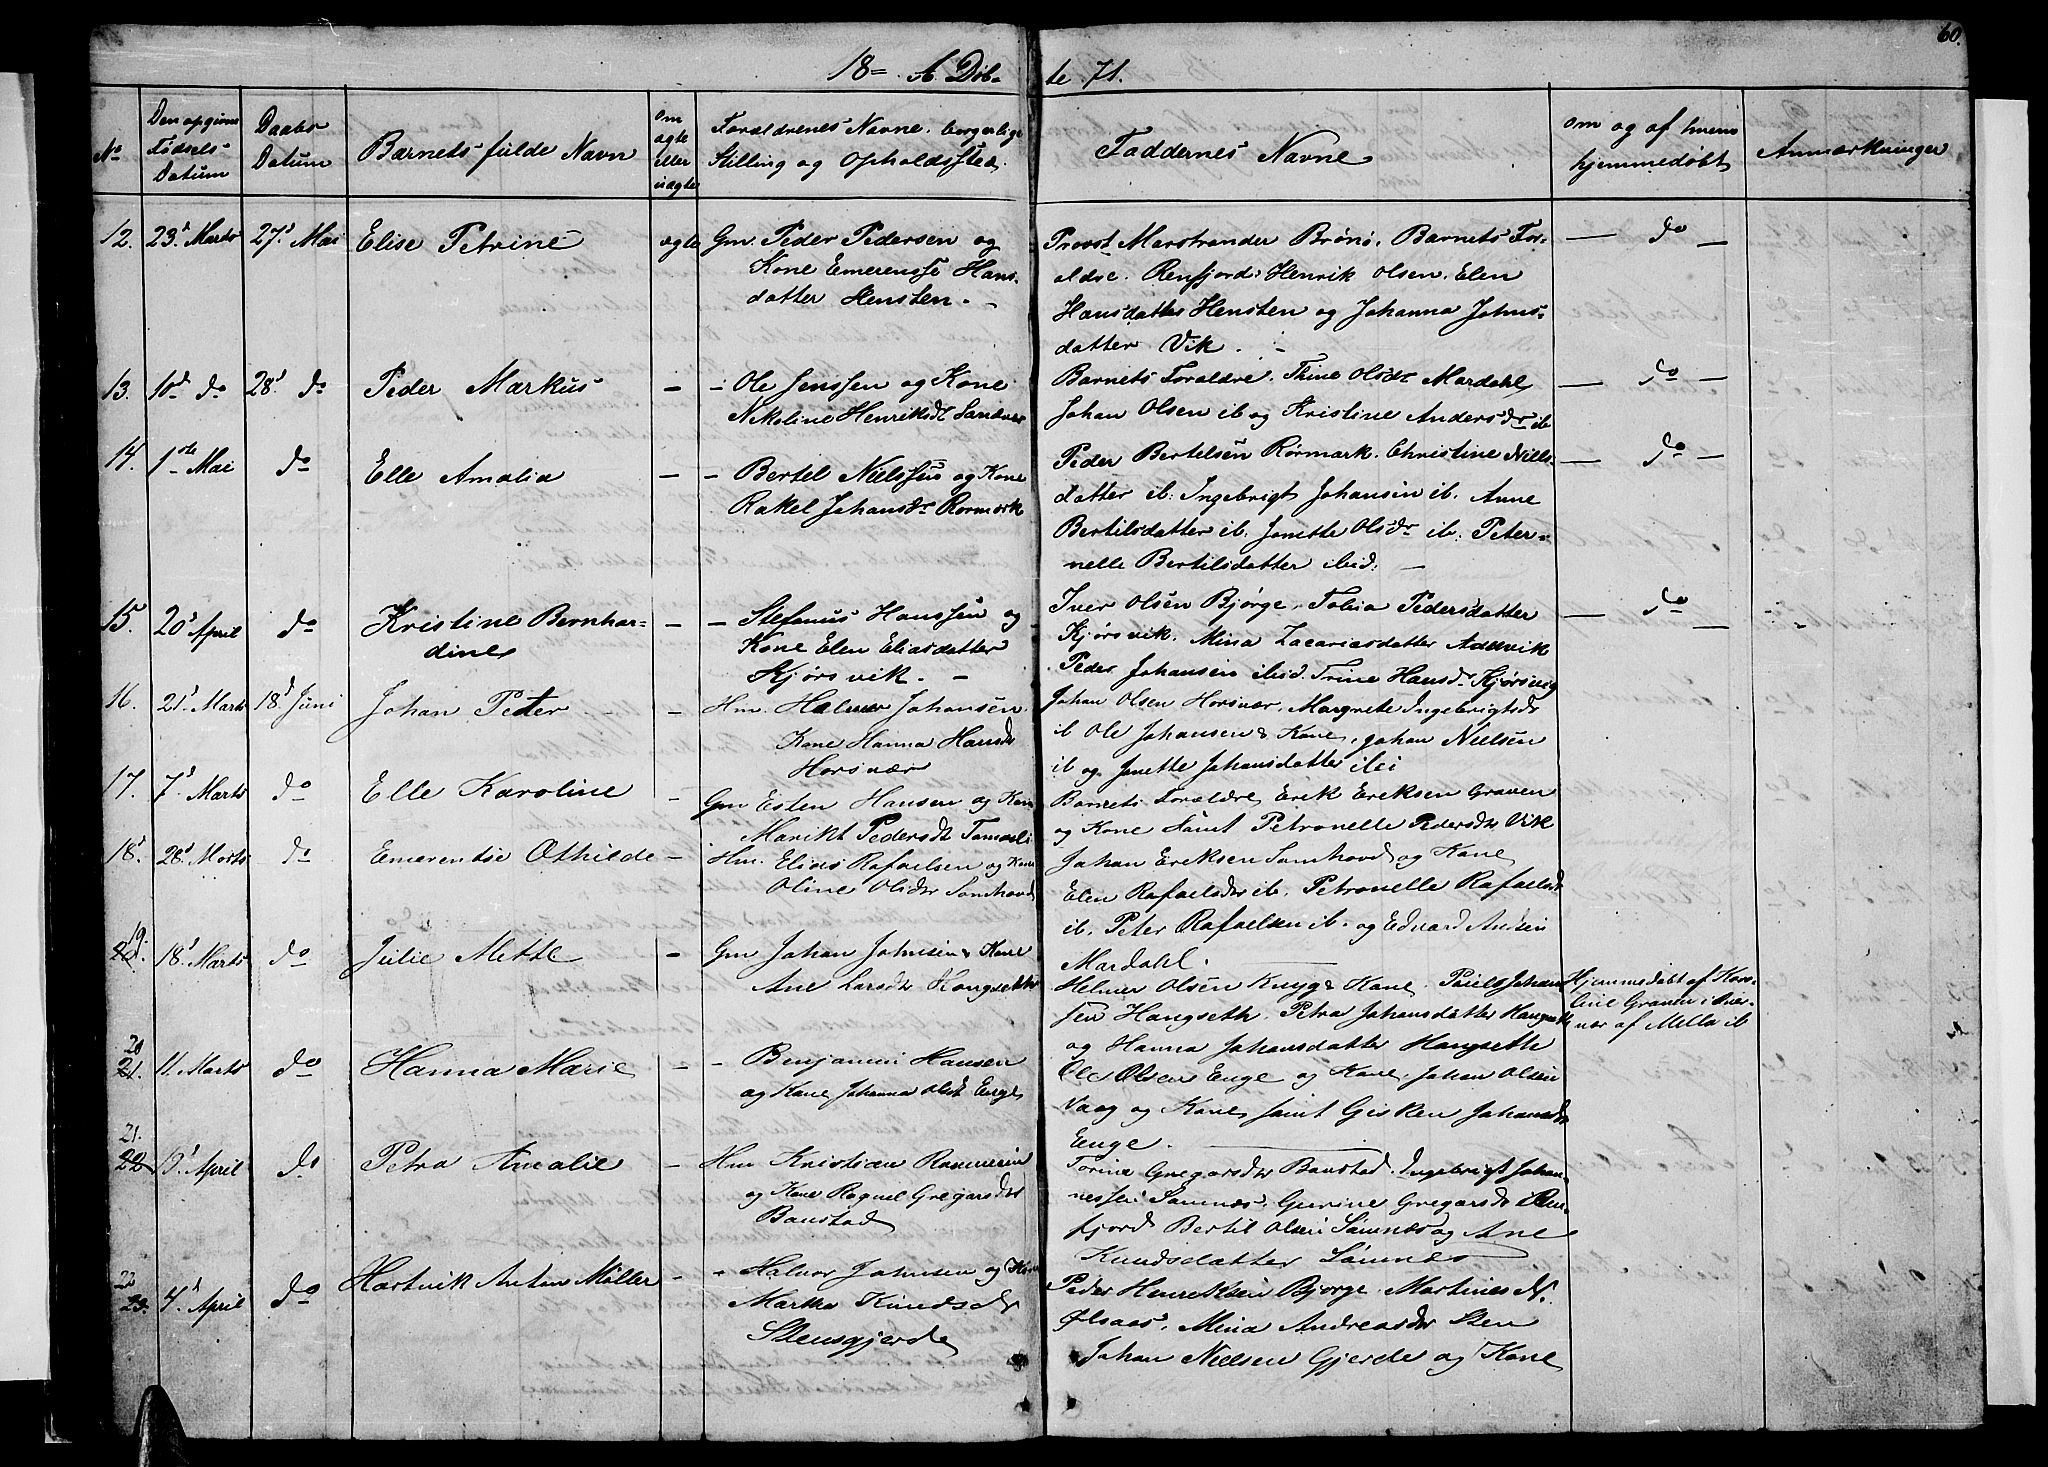 60.
18= A. Döb-
te 71.
No
Den opgivne
Fødsels-
Datum
Daabs
Datum
Barnets fulde Navn
Om
ægte
eller
uægte
Forældrenes Navne, borgerlige
Stilling og Opholdssted
Faddernes Navne
om og af hvem
hjemmedøbt
Anmærkninger
12. 23d Marts 27d Mai Elise Petrine ægte Gm. Peder Pedersen og
Kone Emerensse Hans-
datter Hensten. -
Provst Marstrander Brønø. Barnets For-
ældre. Renfjord: Henrik Olsen. Elen
Hansdatter Hensten og Johanna Johns-
datter Vik. -
— do —
13. 10d do 28d do Peder Markus - - Ole Jenssen og Kone
Nikoline Henriksdt Sandvær
Barnets Forældre. Thine Olsdr Mardahl
Johan Olsen ib og Kristine Andersdr ib
— do —
14. 1ste Mai do Elle Amalia - - Bertel Nielssen og Kone
Rakel Johansdr Rørmark
Peder Bertelsen Rørmark. Christine Niels-
datter ib: Ingebrigt Johansen ib. Anne
Bertilsdatter ib. Jonette Olsdr ib. Peter-
nelle Bertilsdatter ibid. —
— do —
15. 20d April do Kristine Bernhar-
dine
- - Stefanus Hanssen og
Kone Elen Eliasdatter
Kjørsvik. -
Iver Olsen Bjørge. Tobia Pedersdatter
Kjørsvik. Mina Zacariasdatter
Peder Johansen ibid. Trine Hansd. Kjørsvig
— do —
16. 21d Marts 18d Juni Johan Peter - Hm. Johansen
Kone Hanna Hansdr
Horsvær
Johan Olsen Horsvær. Margrete Ingebrigtsdr
ib Ole Johansen & Kone. Johan Nielsen
ib og Jonette Johansdatter
17. 7d Marts do Elle Karoline - Gm Esten Hansen og Kone
Marikt Pedersdt
Barnets Forældre Erik Eriksen Graven
og Kone samt Petronelle Pedersdr Vik
18. 28d Marts do Emerentse Othilde - Hm. Elias Rafaelsen og Kone
Oline Olsdr Somhovd
Johan Eriksen Somhovd og Kone
Elen Rafaelsdr ib. Petronelle Rafaelsdr
ib. Peter Rafaelsen ib. og Edvard
Mardahl.
19. 18d Marts do Julie Mette - Gm Johan Johnsen & Kone
Ane Larsdr Hongseth
Helmer Olsen Knyg & Kone. Johan-
sen Hangseth. Petra Johansdatter Hangseth
og Hanna Johansdatter Hangseth
Hjemmedøbt af
Graven i
af Mella ib
20
21. 11. Marts do Hanna Marie - - Benjamin Hansen
og Kone Johanna Olsdt Enge
Ole Olsen Enge og Kone. Johan Olsen
Vaag og Kone, samt Gisken Johansdr
Enge.
21.
22 April do Petra Amalie - Hm Kristian
og Kone Raguel Gregarsdr
Baustad
Torina Gregarsdr Baustad. Ingebrigt Johan-
nessen Sømnes. Gurine Gregarsdr Ren-
fjord Bertil Olsen Sømnes og Ane
Knudsdatter Sømnes
22
23. 4d April do Hartvik Anton Møller - - Halvor Johnsen og Kone
Marka Knudsdr
Stensgjerde
Peder Henriksen Bjørge. Martines N.
Ølsaas. Mina Andreasdr Sten
Johan Nielsen Gjerde og Kone